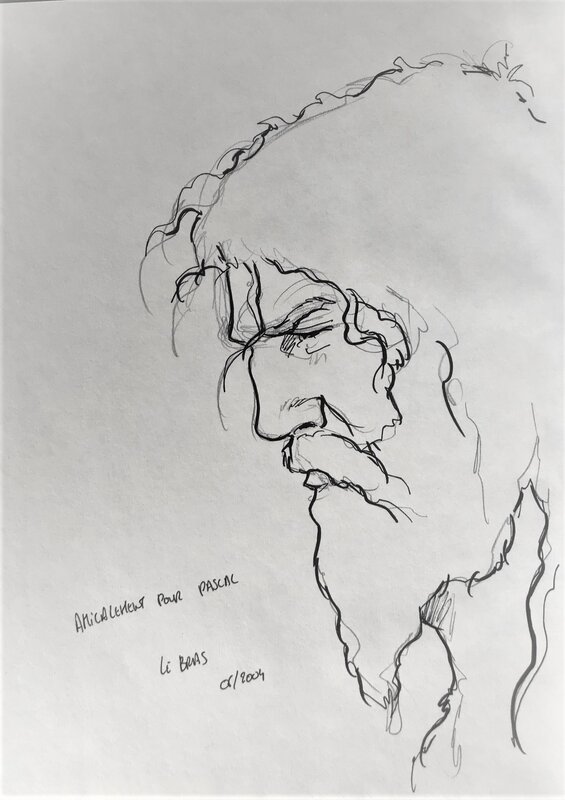 AMICALEMENT POUR PASCAL
LE BRAS
06/2004